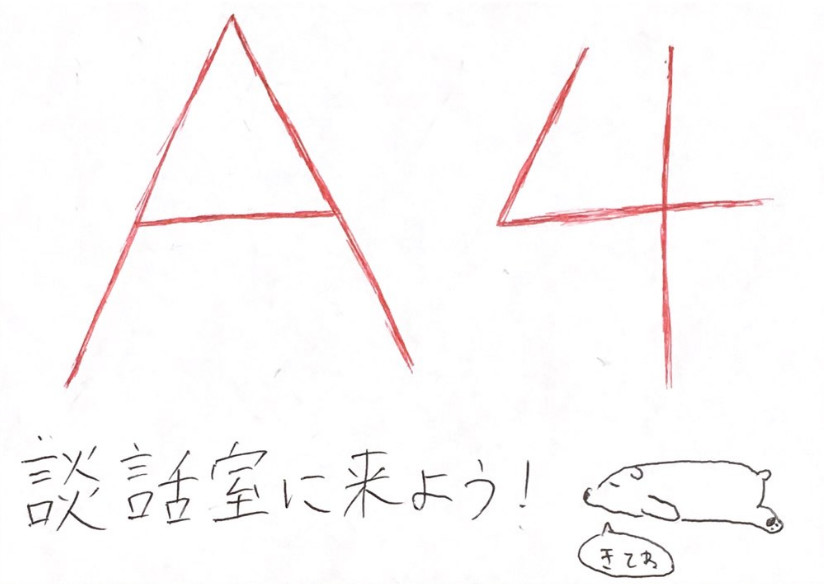 A4
談話室に来よう!
きてね